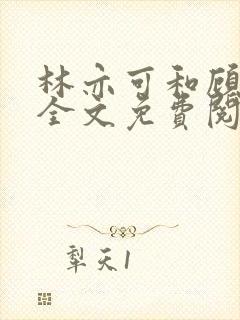 林亦可和顾
全文免费阅
犁天1